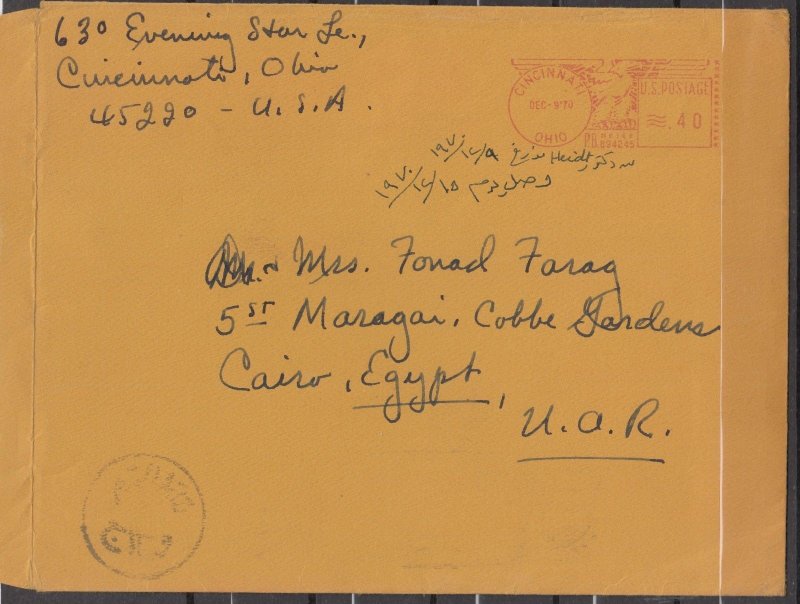 630 Evening Star Le.,
Cincinnati, Ohio
45220 - U.S.A.
CINCINNATI
DEC-9'70
OHIO
U.S. POSTAGE
.40
P.B. METER
694245
من دكتور Heidt بتاريخ ١٩٧٠/١٢/٩
وصل يوم ١٩٧٠/١٢/١٥
Mrs. Fouad Farag
5 ST Maragai, Cobbe Gardens
Cairo, Egypt,
U.A.R.